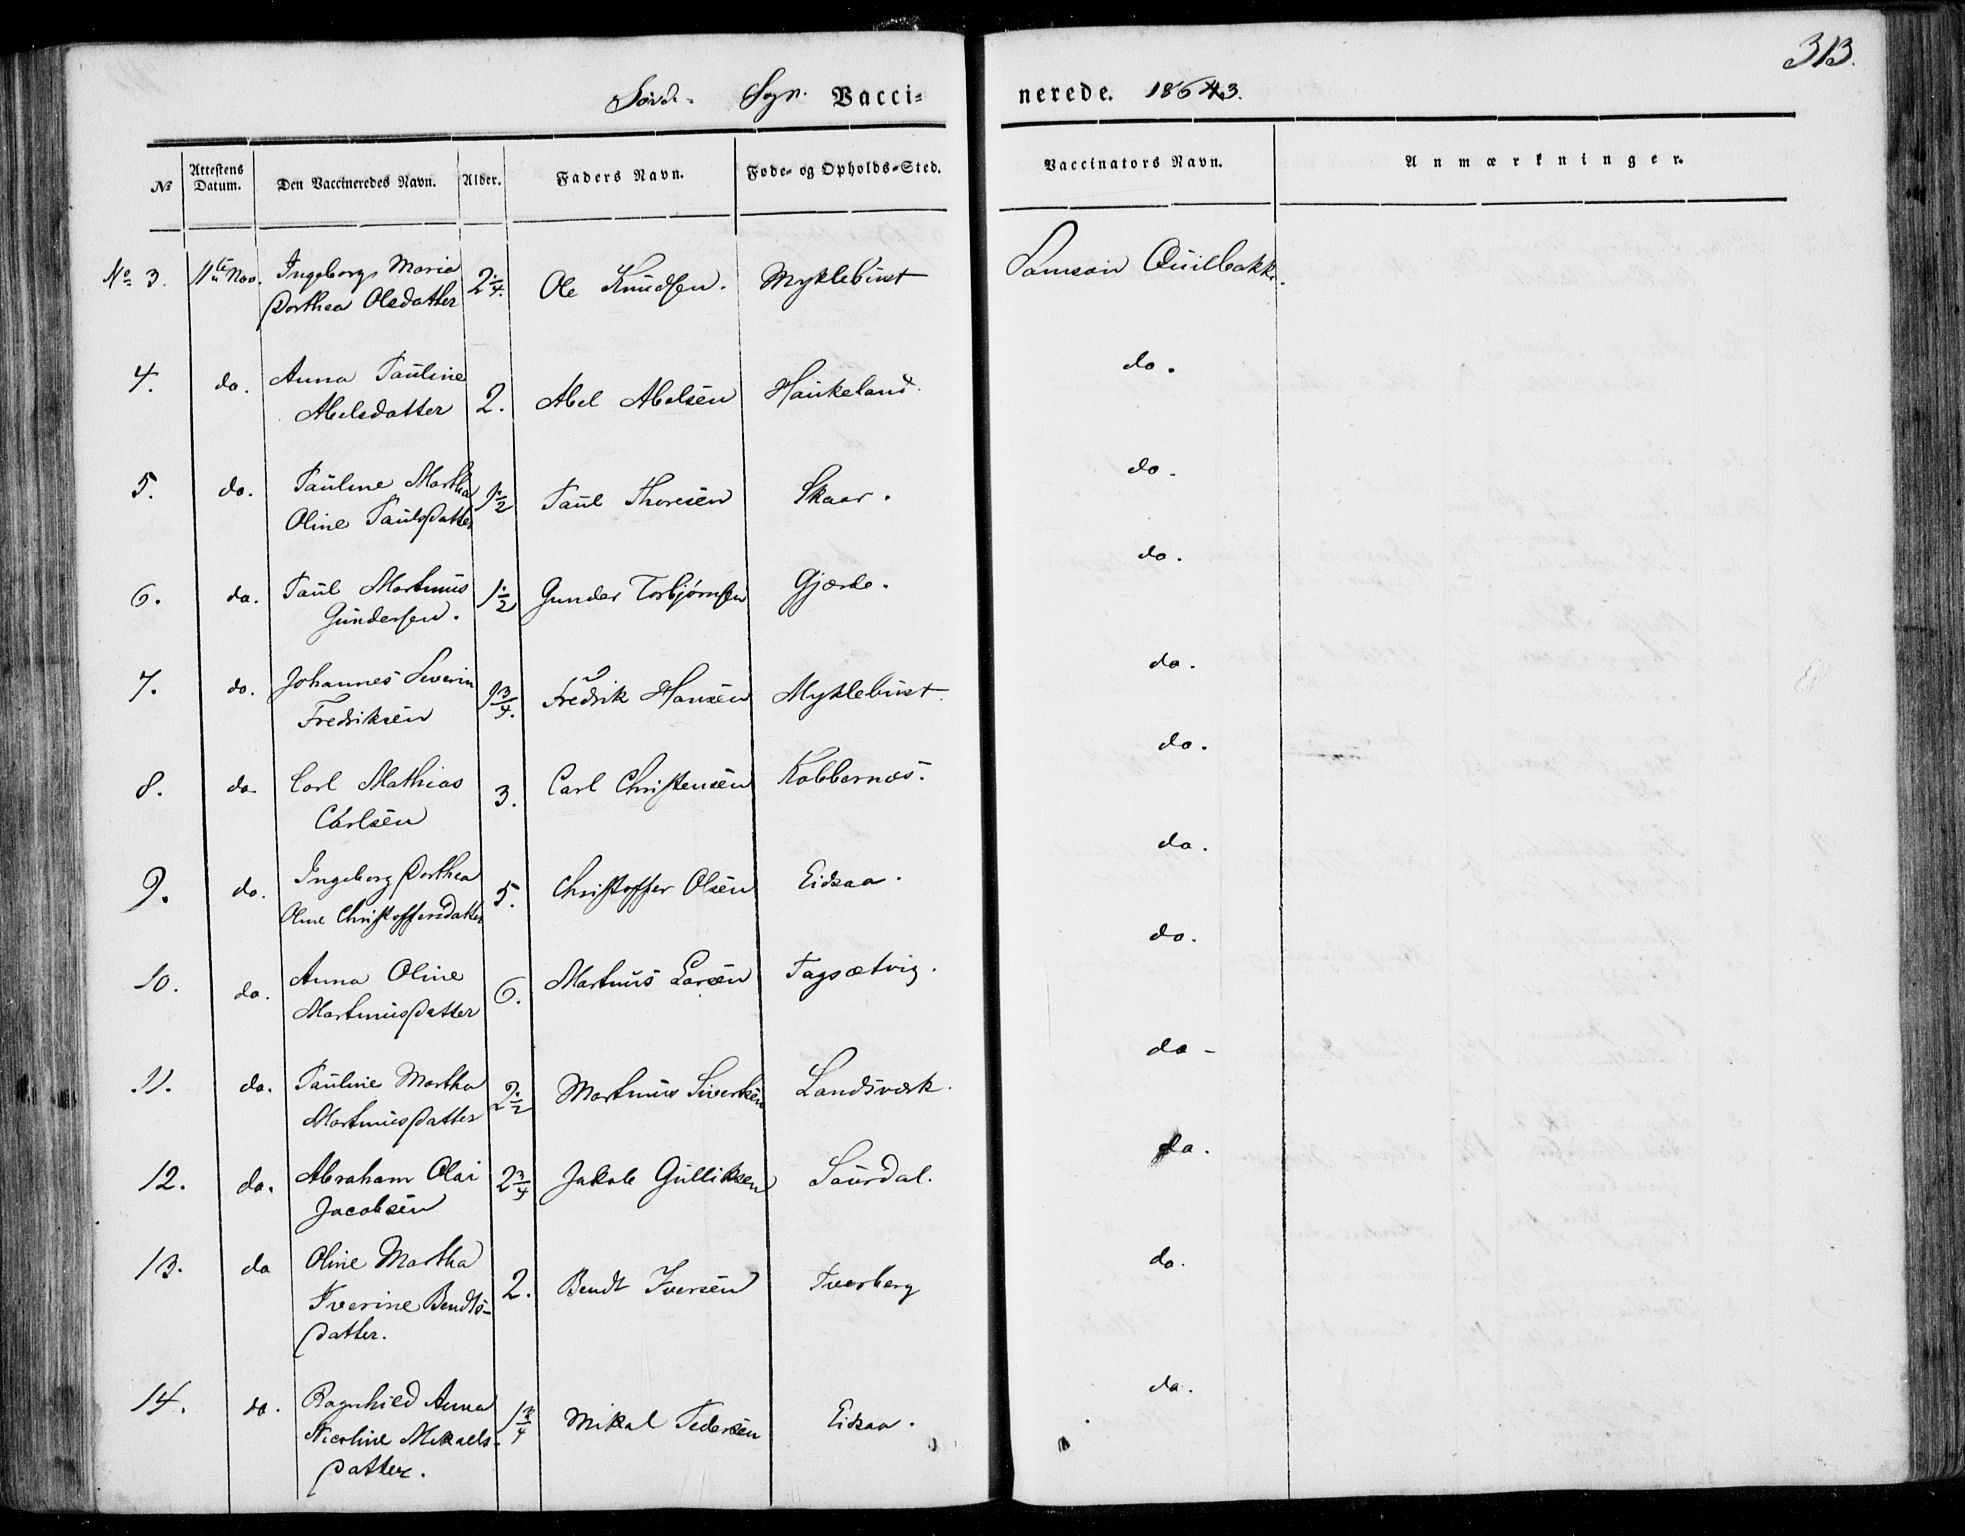 313.
Sogn. Vacci= nerede. 1863.
№ Attestens Datum. Den Vaccineredes Navn. Alder. Faders Navn. Føde- og Opholds-Sted. Vaccinators Navn. Anmærkninger.
No 3. 11te Nov. Ingeborg Maria 2 1/4. Ole Knudsen. Myklebust Samson
Dorthea Olsdatter
4. do. Anna Pauline 2. Abel Abelsen Haukeland. do.
Abelsdatter
5. do. Pauline Martha 1 1/2 Paul Thoresen Skaar. do.
Oline Paulsdatter
6. do. Paul Martinus 1 1/2 Gunder Torbjørnsen Gjærde. do.
Gundersen.
7. do. Johannes Severin 1 3/4. Fredrik Hansen Myklebust. do.
Fredriksen
8. do Carl Mathias 3. Carl Christensen Kobbernes. do.
Carlsen
9. do. Ingeborg Dorthea 5. Christoffer Olsen Eidsaa. do.
Oline Christoffersdatter
10. do. Anna Oline 6. Martinus Larsen Tagsætvig. do.
Martinusdatter
11. do. Pauline Martha 2 1/2 Martinus Sivertsen Landsværk. do-
Martinusdatter
12. do. Abraham Olai 2 3/4 Jakob Gulliksen Saurdal. do.
Jacobsen
13. do Oline Martha 2. Bendt Iversen Tverberg do.
Iverine Bendts-
datter.
14. do. Ragnhild Anna 1 3/4 Mikal Pedersen Eidsaa. do.
Nicoline Mikaels-
datter.